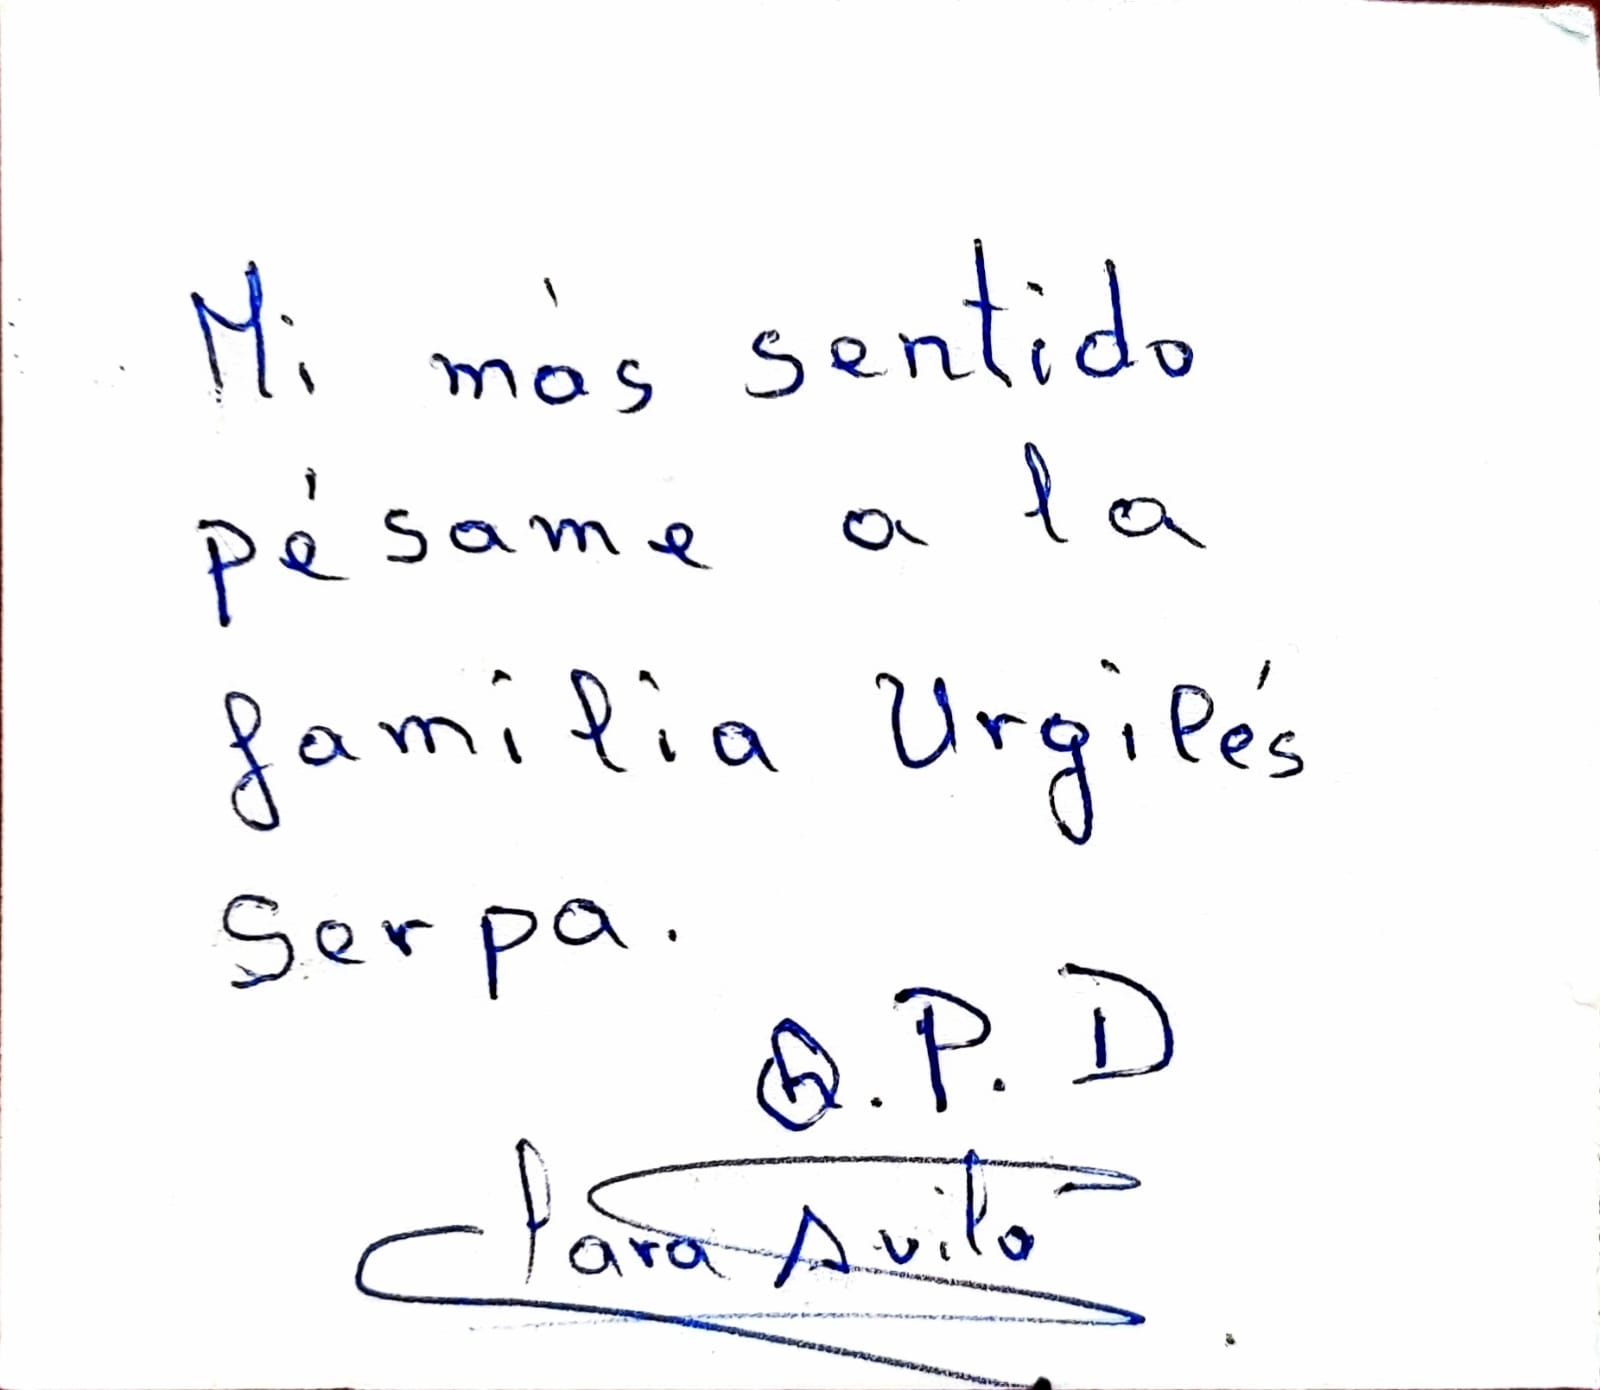 Mi más sentido
pésame a la
familia Urgilés
Serpa.
Q.P.D
Clara Avila